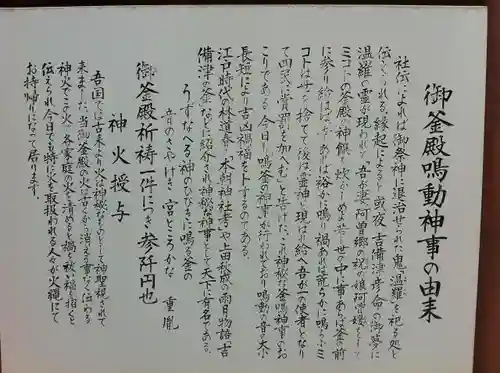 御釜殿鳴動神事の由来
社伝によれば御祭神に退治せられた鬼「温羅」を祀る処と
伝えられる。縁起によると或夜、吉備津彦命の御夢に
温羅の霊が現われて「吾が妻、阿曽郷の祝の娘阿曽媛をして
ミコトの釜殿の神饌を炊がしめよ。若し世の中に事あれば釜の前
に参り給はば幸あれば裕かに鳴り禍あれば荒らかに鳴ろう。ミ
コトは世を捨てて後は霊神と現はれ給へ。吾が一の使者となり
て四民に賞罰を加へむ」と告げた。この神秘な釜鳴神事のおこ
こりである。今日も鳴釜の神事が行われており鳴動の音の大小
長短により吉凶禍福を卜するのである。
江戸時代の林道春の「本朝神社考」や上田秋成の雨月物語「吉
備津の釜」などに紹介され神秘な神事として天下に有名である。
うずなへる神のひびきに鳴る釜の
音のさやけき宮ところかな 重胤
御釜殿祈祷一件につき参阡円也
神火授与
吾国では古来より火は神秘なものとして神聖視されて
来ました。当御釜殿の火は古くから消える事なく伝わる
神火でこの火で各家庭の火を清めると禍を祓い福を招くと
伝えられ今日でも特に火を取扱われる人々が火縄にて
お持帰りになって居ります。